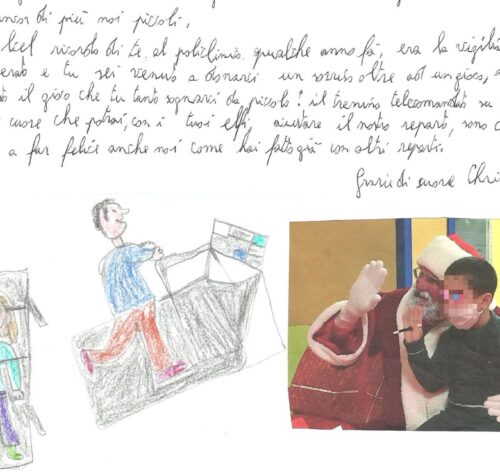 ancor di più noi piccoli.
Nel ricordo di te al policlinico qualche anno fa, era la vigilia
e tu sei venuto a donarci un sorriso oltre ad un gioco,
il gioco che tu tanto sognavi da piccolo! il trenino telecomandato su
cuore che potrai, con i tuoi elfi, aiutare il nostro reparto, sono
a far felice anche noi come hai fatto già con altri reparti.
Grazie di cuore Chri